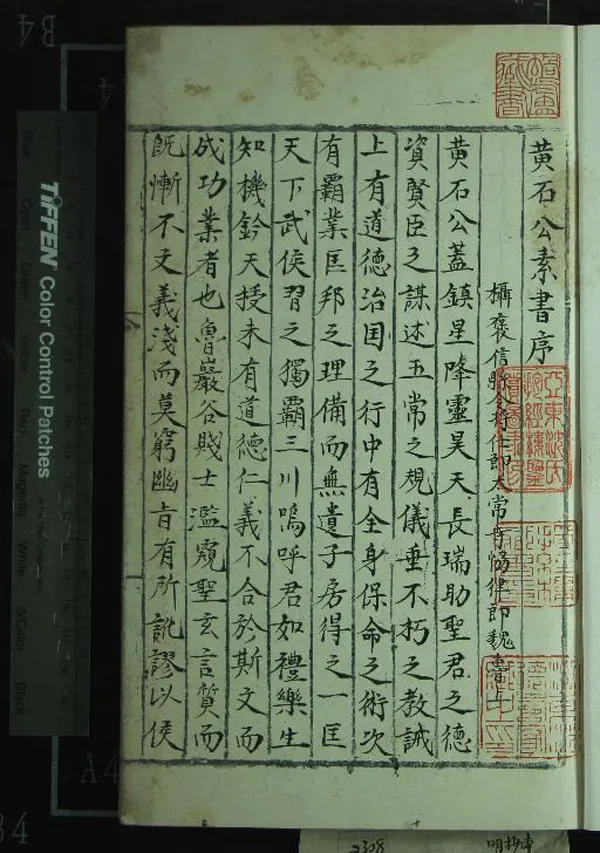 黄石公素書序
攝襃信縣令將仕郎太常寺恊律郎魏魯上
黄石公蓋鎮星降靈昊天長瑞助聖君之德
資賢臣之謀述五常之規儀垂不朽之教誡
上有道德治国之行中有全身保命之術次
有覇業匡邦之理備而無遺子房得之一匡
天下武侯習之獨覇三川嗚呼君如禮樂生
知機鈐天授未有道德仁義不合於斯文而
成功業者也魯巖谷賤士濫窺聖玄言質而
既慚不文義淺而莫窮幽旨有所訛謬以俟
TIFFEN Color Control Patches
Blue
Cyan
Green
Yellow
Red
Magenta
White
3/Color
Black
B4
A4
2308